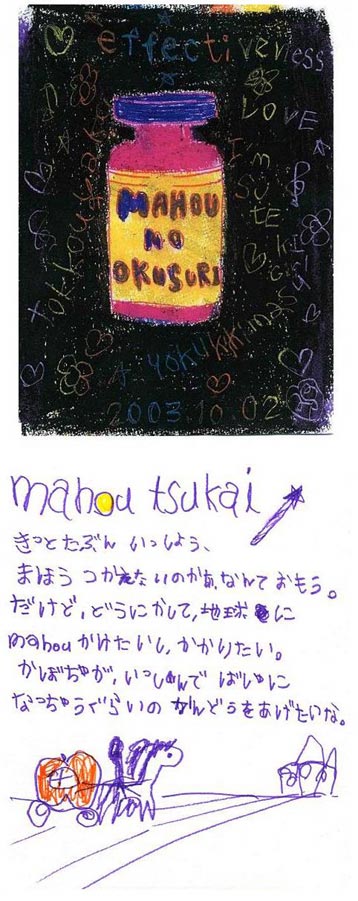 effectiveness
LOVE
MAHOU
NO
OKUSURI
YOKU KIKIMASU
2003.10.02
mahou tsukai
きっとたぶん いっしょう、
まほう つかえないのかぁ、なんて おもう。
だけど、どうにかして、地球に
mahou かけたいし、かかりたい。
かぼちゃが、いっしゅんで ばしゃに
なっちゅうぐらいの かんどうをあげたいな。